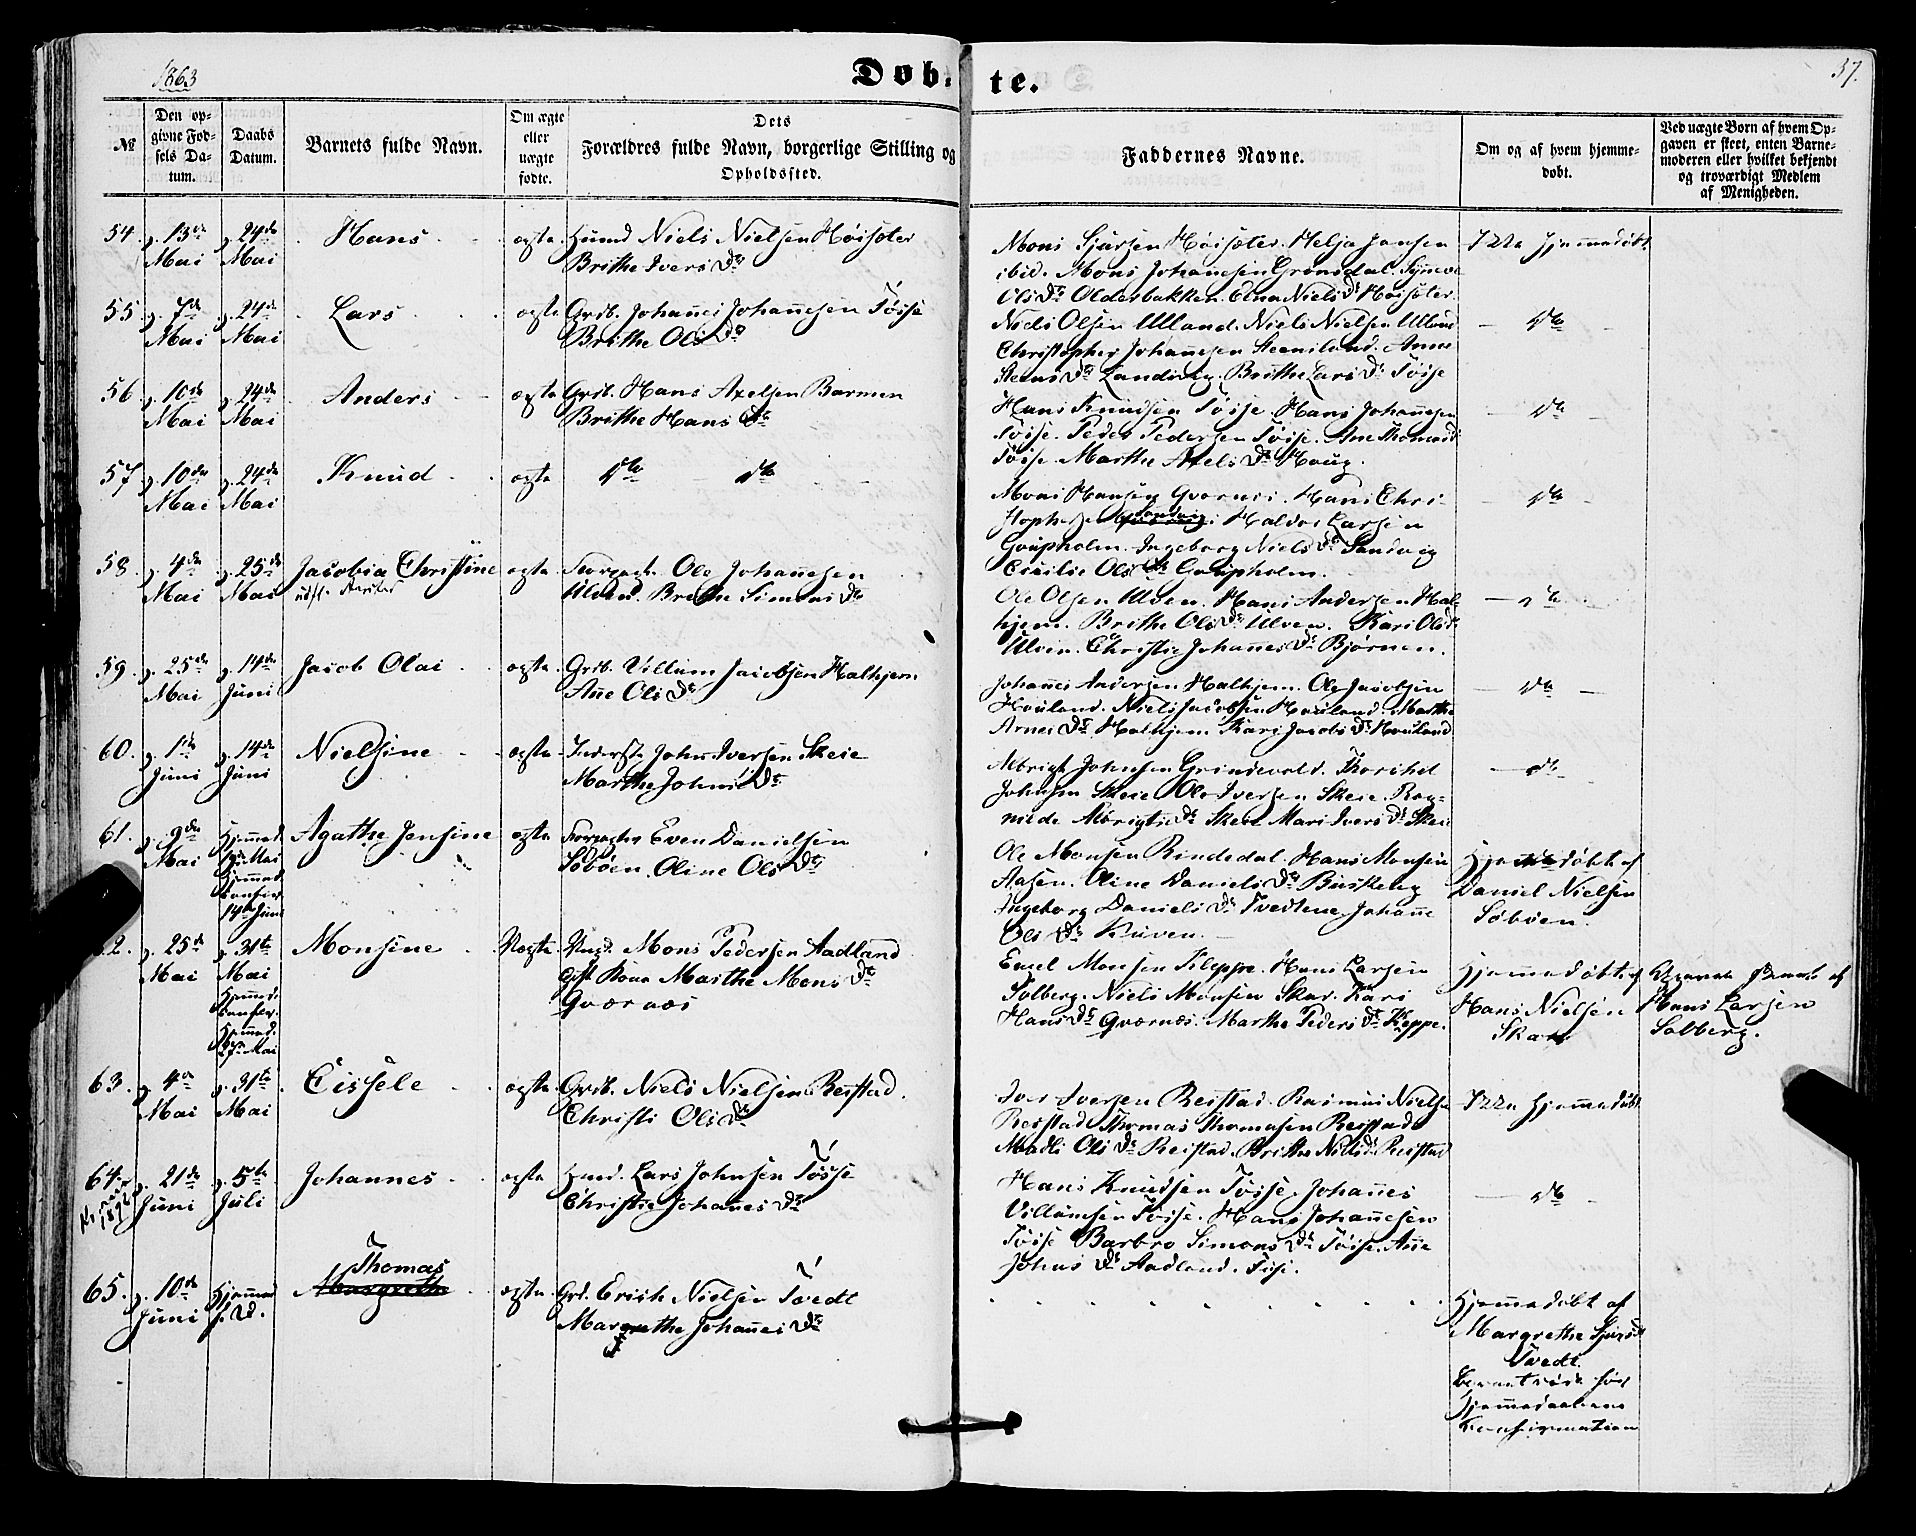 1863
Døbte.
37.
№
Den op-
givne Fød-
sels Da-
tum.
Daabs
Datum.
Barnets fulde Navn.
Om ægte
eller
uægte
fødte.
Dets
Forældres fulde Navn, borgerlige Stilling og
Opholdssted.
Faddernes Navne.
Om og af hvem hjemme-
døbt.
Ved uægte Børn af hvem Op-
gaven er skeet, enten Barne-
moderen eller hvilket bekjendt
og troværdigt Medlem
af Menigheden.
54. 13de Mai 24de Mai Hans ægte Huusmd Niels Nielsen Høisæter
Brithe Ivers Dr
Mons Sjursen Høisæter. Helje Jansen
ibid. Mons Johannesen Grønsdal. Synneve
Ols Dr Oldersbakken. Elna Niels Dr Høisæter.
Ikke hjemmedøbt
55. 7de Mai 24de Mai Lars ægte Grdb. Johannes Johannesen Tøsse
Brithe Ols Dr
Niels Olsen Ulland. Niels Nielsen Ulland
Christopher Johannesen Steensland. Anne
Steens Dr Landsvig. Brithe Lars Dr Tøsse
do
56. 10de Mai 24de Mai Anders ægte Grdb. Hans Axelsen Barmen
Brithe Hans Dr
Hans Knudsen Tøsse. Hans Johannesen
Tøsse. Peder Pedersen Tøsse. Ane Thomasd
Tøsse. Marthe Axels Dr Houg.
do
57. 10de Mai 24de Mai Knud ægte do do
Mons Hansen Gværnæs. Hans Chri-
stophersen Sandvig. Haldor Larsen
Gripholm. Ingeborg Niels Dr Sandvig
Cicilie Ols Dr Gripholm.
do
58. 4de Mai 25de Mai Jacobia Christine
ægte Forpagter Ole Johannesen
Ulven. Brithe Simons Dr
Ole Olsen Ulven. Hans Andersen Hal-
hjem. Brithe Ols Dr Ulven. Kari Ols Dr
Ulven. Christie Johannes Dr Bjørnen.
do
59. 25de Mai 14de Juni Jacob Olai ægte Grdb. Villum Jacobsen Halhjem
Ane Ols Dr
Johannes Andersen Halhjem. Ole Jacobsen
Houland. Niels Jacobsen Houland. Marthe
Arnes Dr Halhjem. Kari Jacobs Dr Houland
do
60. 1ste Juni 14de Juni Nielsine ægte Inderste John Iversen Skeie
Marthe Johns Dr
Albrigt Johnsen Grindevold. Thorkel
Johnsen Skeie. Ole Iversen Skeie. Rag-
nilde Albrigts Dr Skeie. Mari Ivers Dr Skeie
do
61. 9de Mai Hjemmed.
Mai
Hjemmed.
confir.
14de Juni
Agathe Jensine ægte Forpagter Even Danielsen
Søbøen. Oline Ols Dr
Ole Monsen Rindedal. Hans Monsen
Aasen. Oline Daniels Dr Buskeberg
Ingeborg Daniels Dr Tvedtene. Johanne
Ols Dr Kuven.
Hjemmedøbt af
Daniel Nielsen
Søbøen.
62. 25de Mai 31te Mai
Hjemmed.
confir.
Hjemmed.
27de Mai
Monsine Uægte Ungk. Mons Pedersen Aadland
Gift Kone Marthe Mons Dr
Gværnæs
Engel Monsen Kleppe. Hans Larsen
Solberg. Niels Monsen Skar. Kari
Hans Dr Gværnæs. Marthe Peders Dr Kleppe.
Hjemmedøbt af
Hans Nielsen
Skar
Opgaven skeet af
Hans Larsen
Solberg.
63. 4de Mai 31te Mai Cissele ægte Grdb. Niels Nielsen Reistad.
Christi Ols Dr
Iver Iversen Reistad. Rasmus Nielsen
Reistad. Thomas Thomasen Reistad
Madli Ols Dr Reistad. Brithe Niels Dr Reistad
Ikke hjemmedøbt
64. 21de Juni 5te Juli Johannes ægte Husmd. Lars Johnsen Tøsse
Christie Johannes Dr
Hans Knudsen Tøsse. Johannes
Villumsen Tøsse. Hans Johannesen
Tøsse Barbro Simons Dr Tøsse. Ane
Johns Dr Aadland. Tøsse.
do
65. 10de Juni Hjemmed
f. D.
Thomas
Margrethe
ægte Grd. Erich Nielsen Tvedt
Margrethe Johannes Dr
Hjemmedøbt af
Margrethe Sjursd
Tvedt.
før
Hjemmedaabens
Confirmation